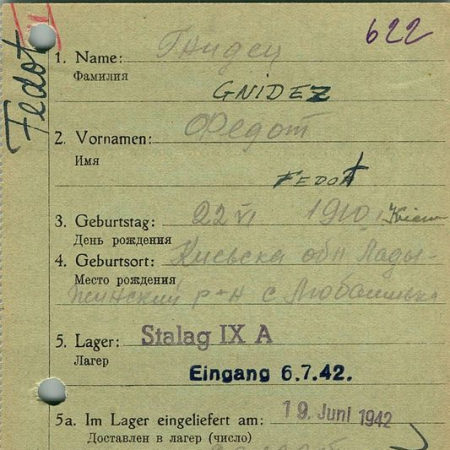 622
Fedot
1. Name: Гнидец
Фамилия
GNIDEZ
2. Vornamen: Федот
Имя
FEDOT
3. Geburtstag: 22 VI 1910 Kiew
День рождения
4. Geburtsort: Киевска обл Лады-
Место рождения
жинский р-н с
5. Lager: Stalag IX A
Лагер
Eingang 6.7.42.
5a. Im Lager eingeliefert am: 19. Juni 1942
Доставлен в лагер (число)